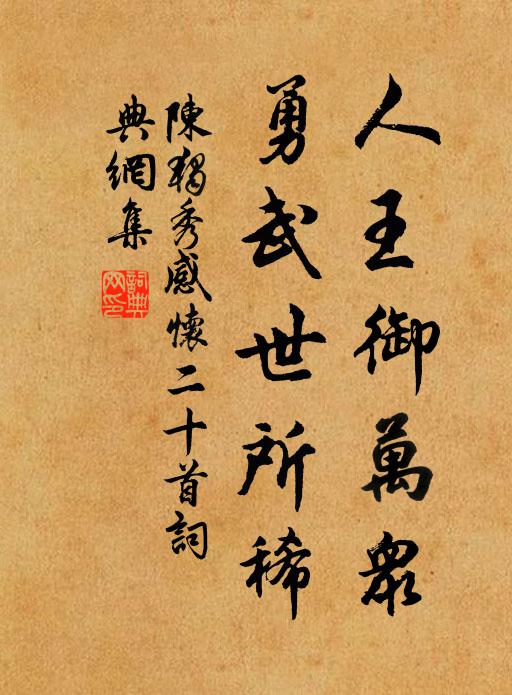 人王御萬衆
勇武世所稀
陳獨秀感懷二十首詞
典網集
詞典
网印